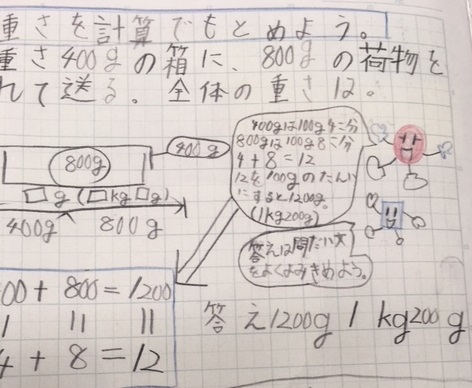 重さを計算でもとめよう。
重さ400gの箱に、800gの荷物を
れて送る。全体の重さは。
800g
400g
□g(□kg□g)
400g 800g
400gは100g4こ分
800gは100g8こ分
4+8=12
12を100gのたんい
にすると1200g。
(1kg200g)
答えは問だい文
をよくよみきめよう。
00+800=1200
|| || ||
4+8=12
答え1200g 1kg200g